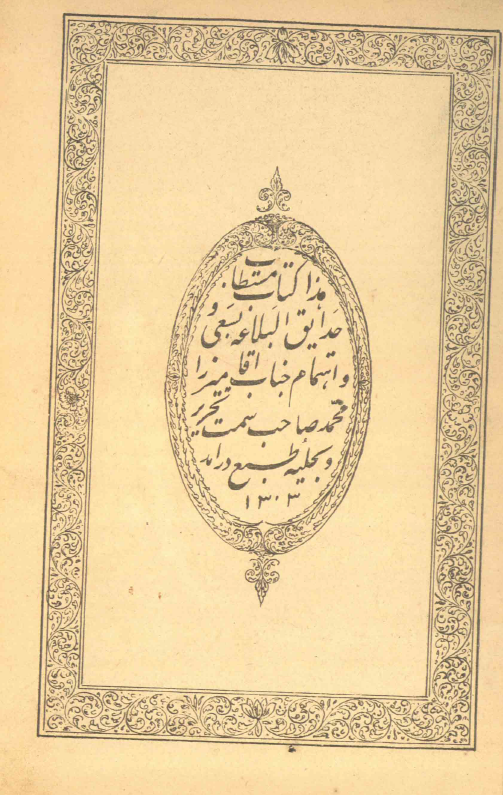 هذا کتاب مستطاب
حدایق البلاغه بسعی و
واهتمام جناب آقا میرزا
محمد صاحب سمت تحریر
و بحلیه طبع درامد
۱۳۰۳